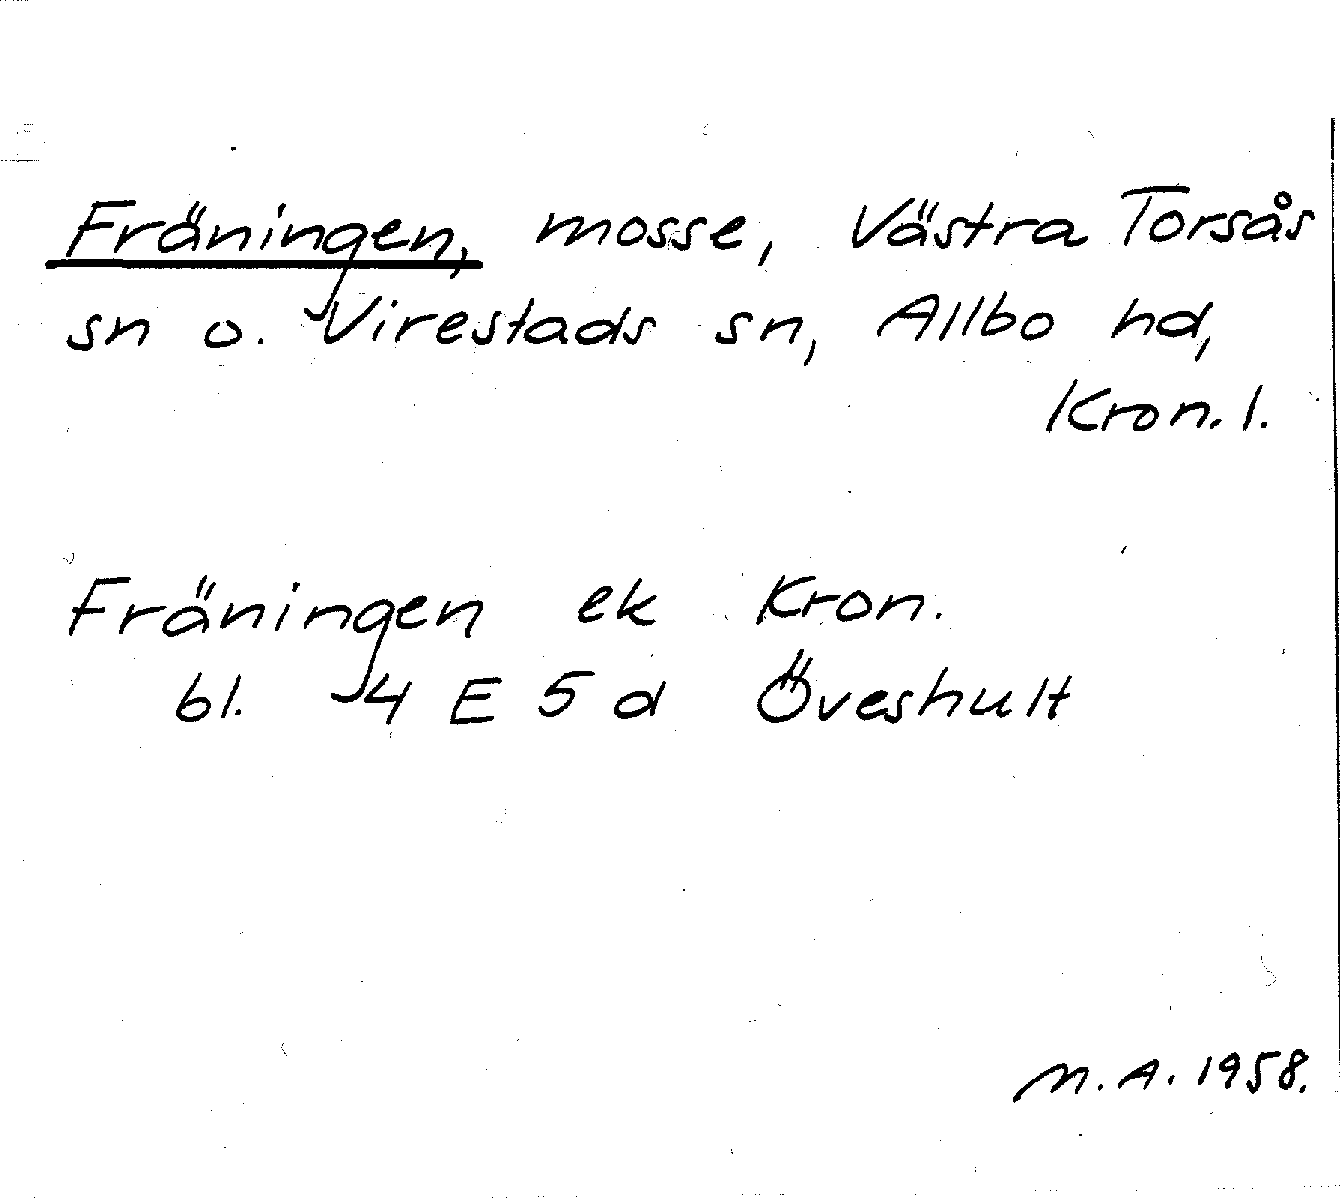 Fräningen, mosse, Västra Torsås
sn o. Virestads sn, Allbo hd,
Kron. l.
Fräningen ek Kron.
bl. 4 E 5 d Öveshult
M. A. 1958.